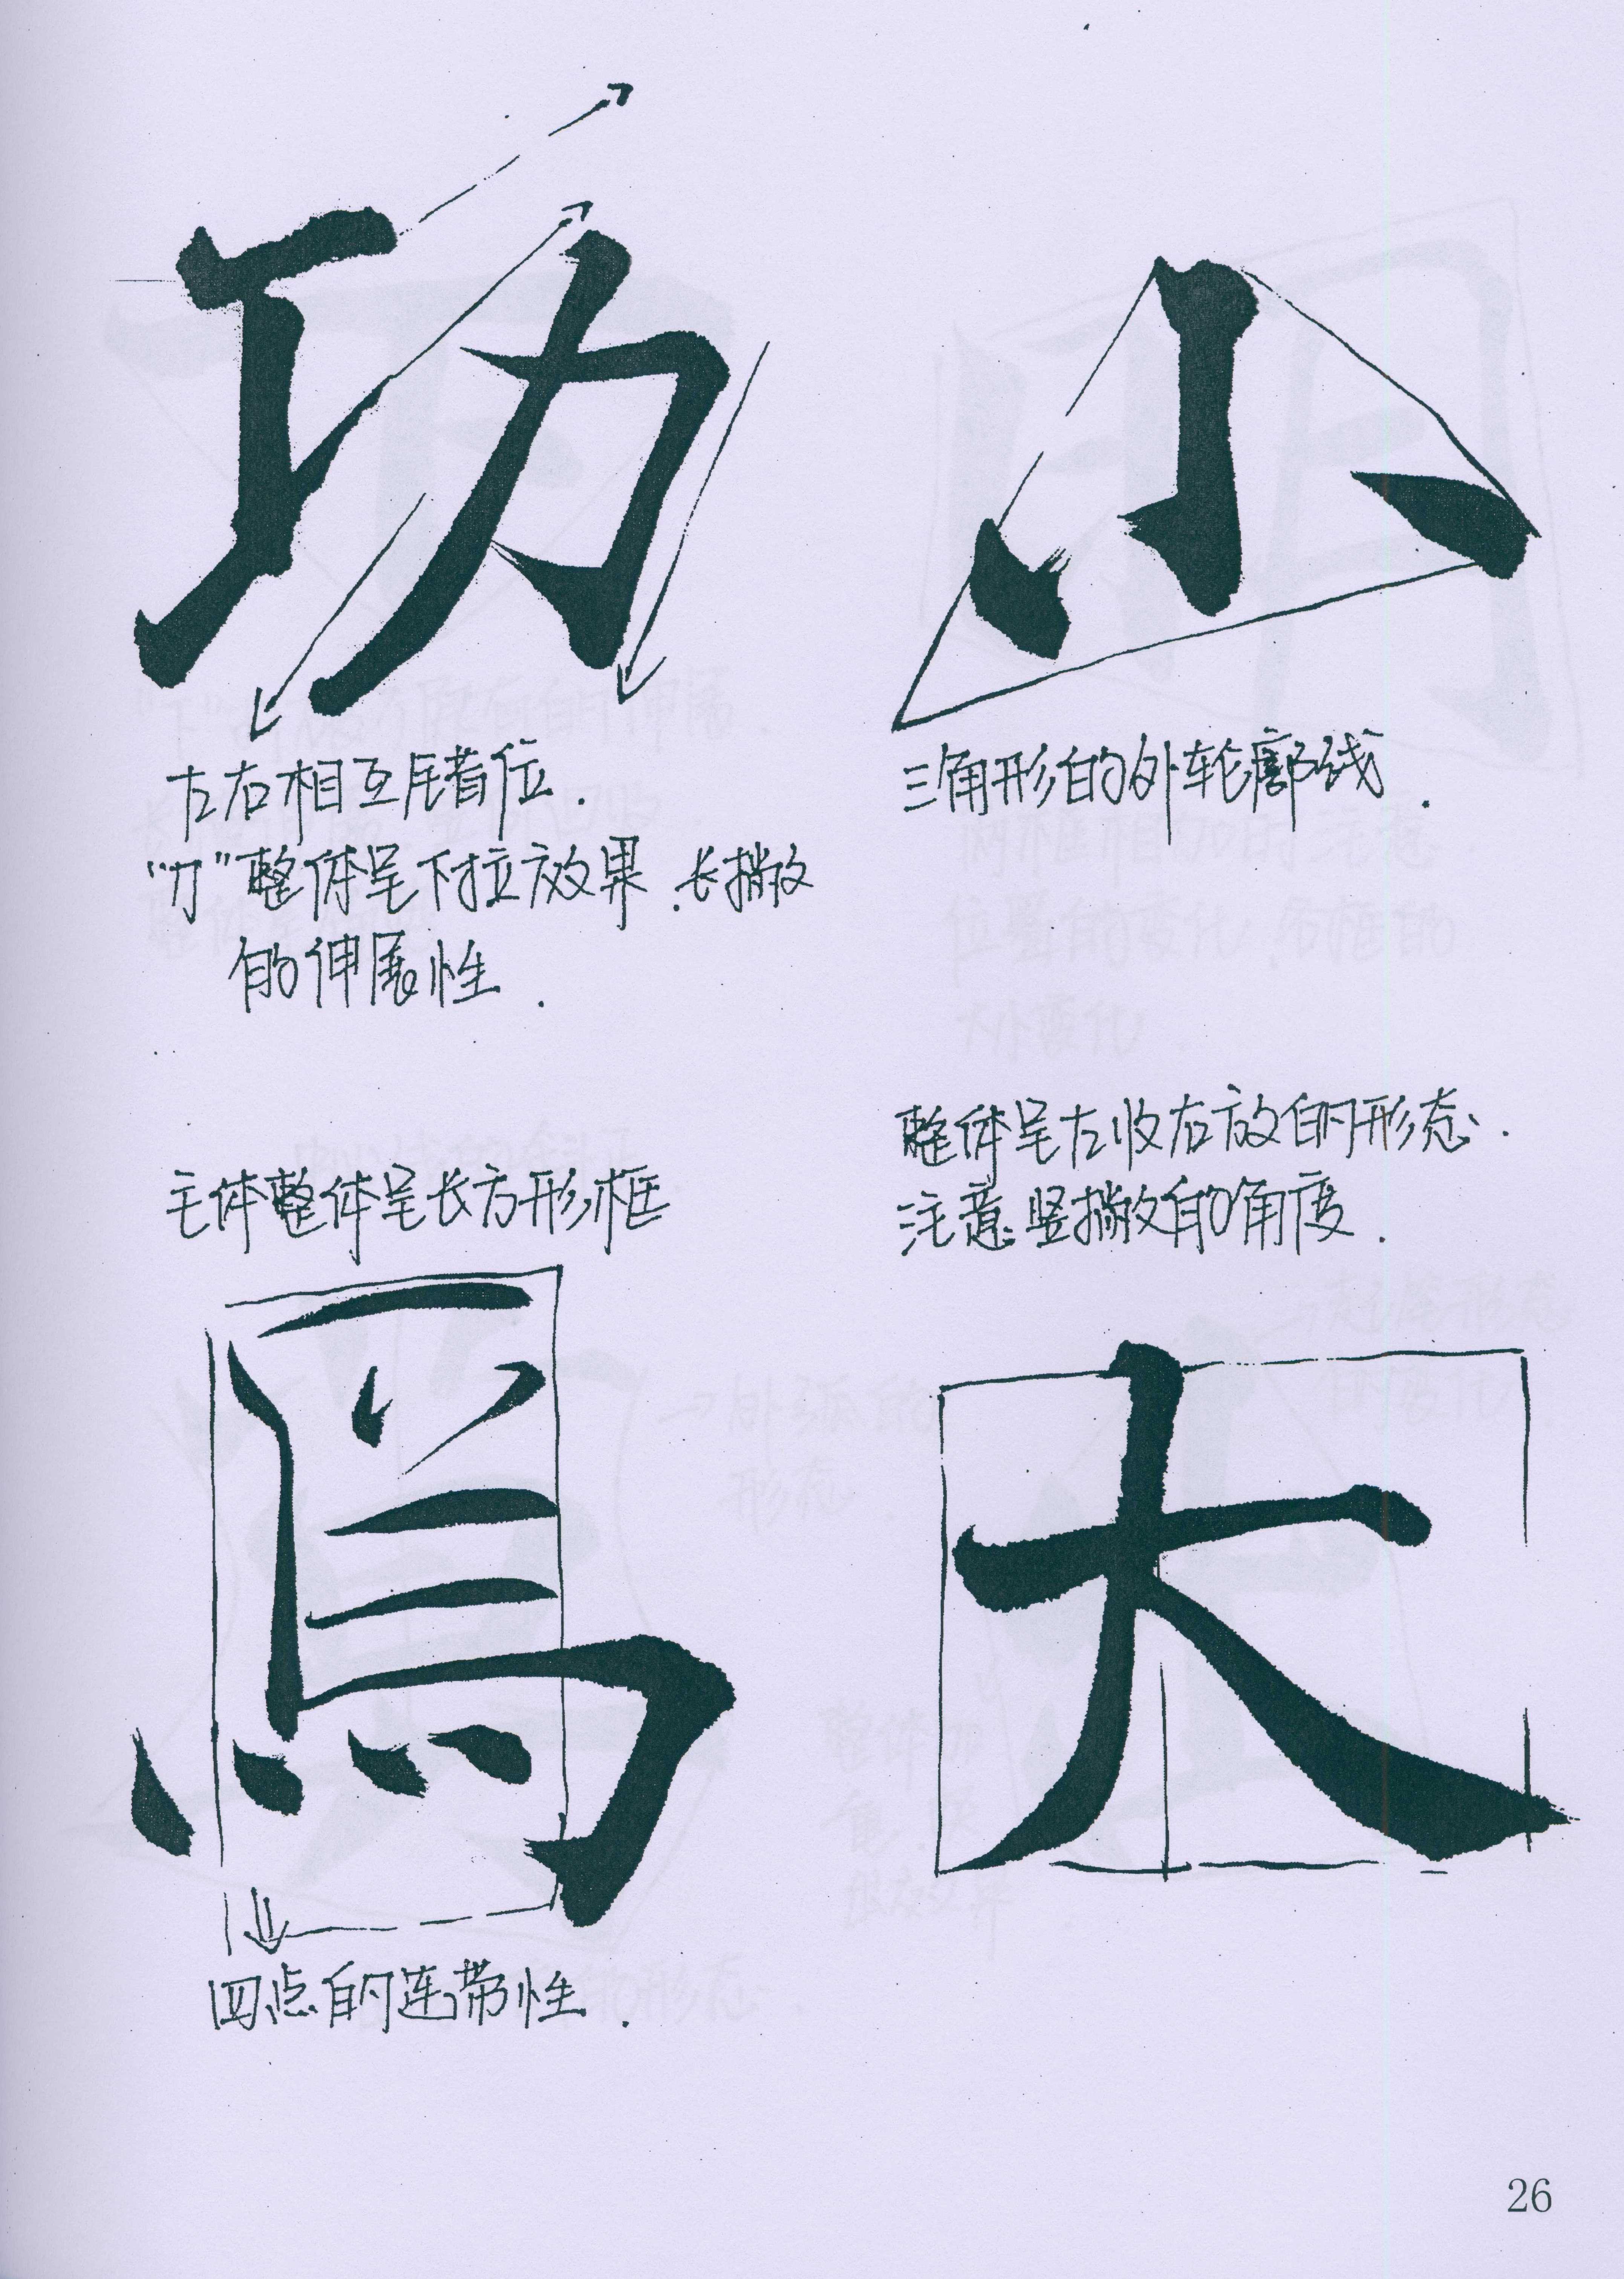 功
左右相互压着位.
“力”整体呈下拉效果.长撇
的伸展性.
小
三角形的外轮廓线.
主体整体呈长方形框
馬
四点的连带性.
整体呈左收右放的形态.
注意竖撇的角度.
大
26